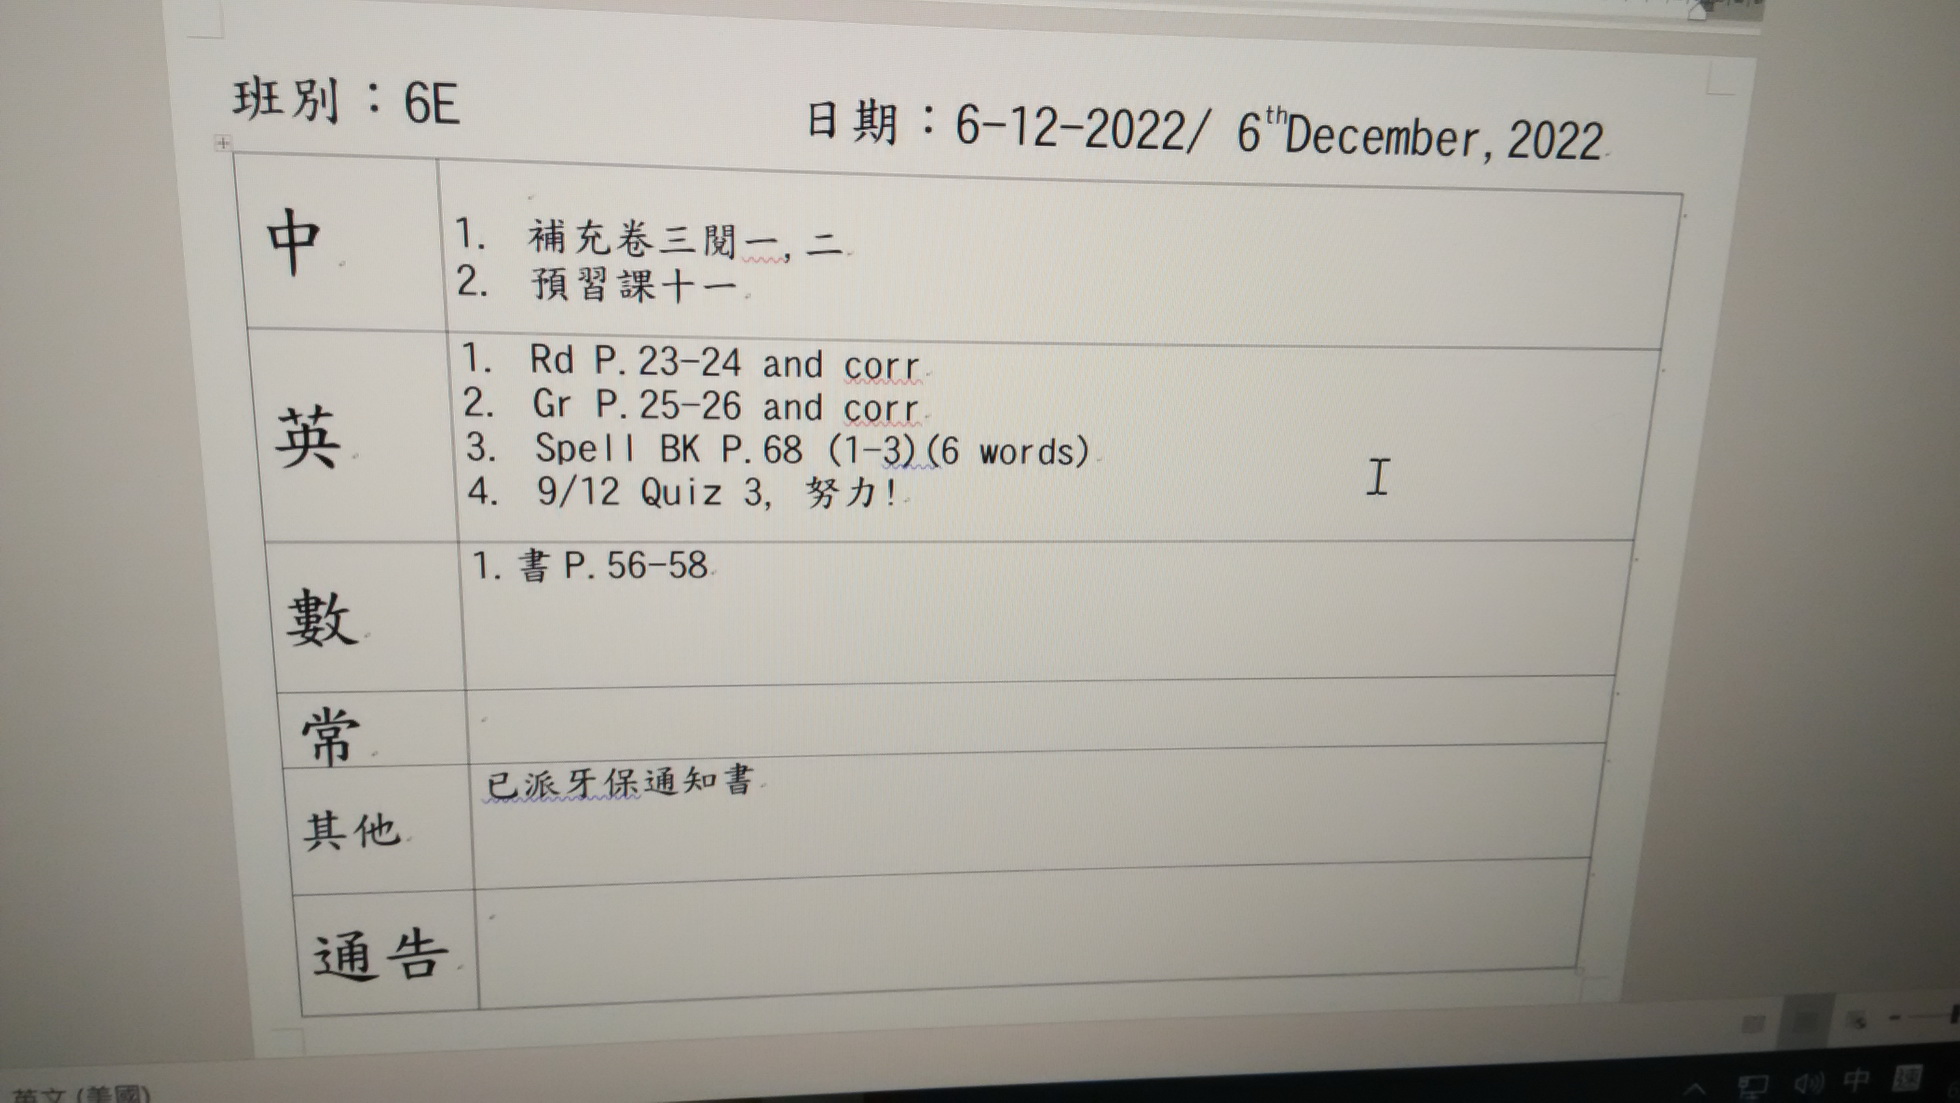 班別：6E
日期：6-12-2022/ 6thDecember, 2022
中
1. 補充卷三閱一,二
2. 預習課十一
英
1. Rd P.23-24 and corr
2. Gr P.25-26 and corr
3. Spell BK P.68 (1-3)(6 words)
4. 9/12 Quiz 3, 努力!
數
1. 書 P.56-58
常
其他
已派牙保通知書
通告
英文 (美國)
中